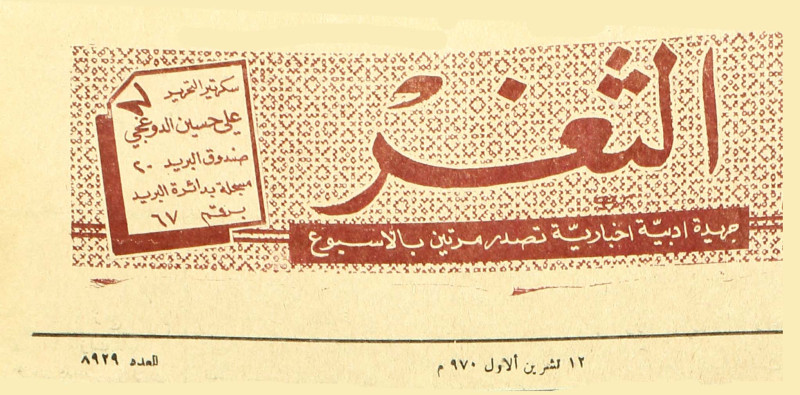 الثغر
جريدة ادبيّة اخباريّة تصدر مرتين بالاسبوع
سكرتير التحرير
علي حسين الدوغجي
صندوق البريد ٢٠
مسجلة بدائرة البريد
برقم ٦٧
١٢ تشرين ألاول ٩٧٠ م
العدد ٨٩٢٩